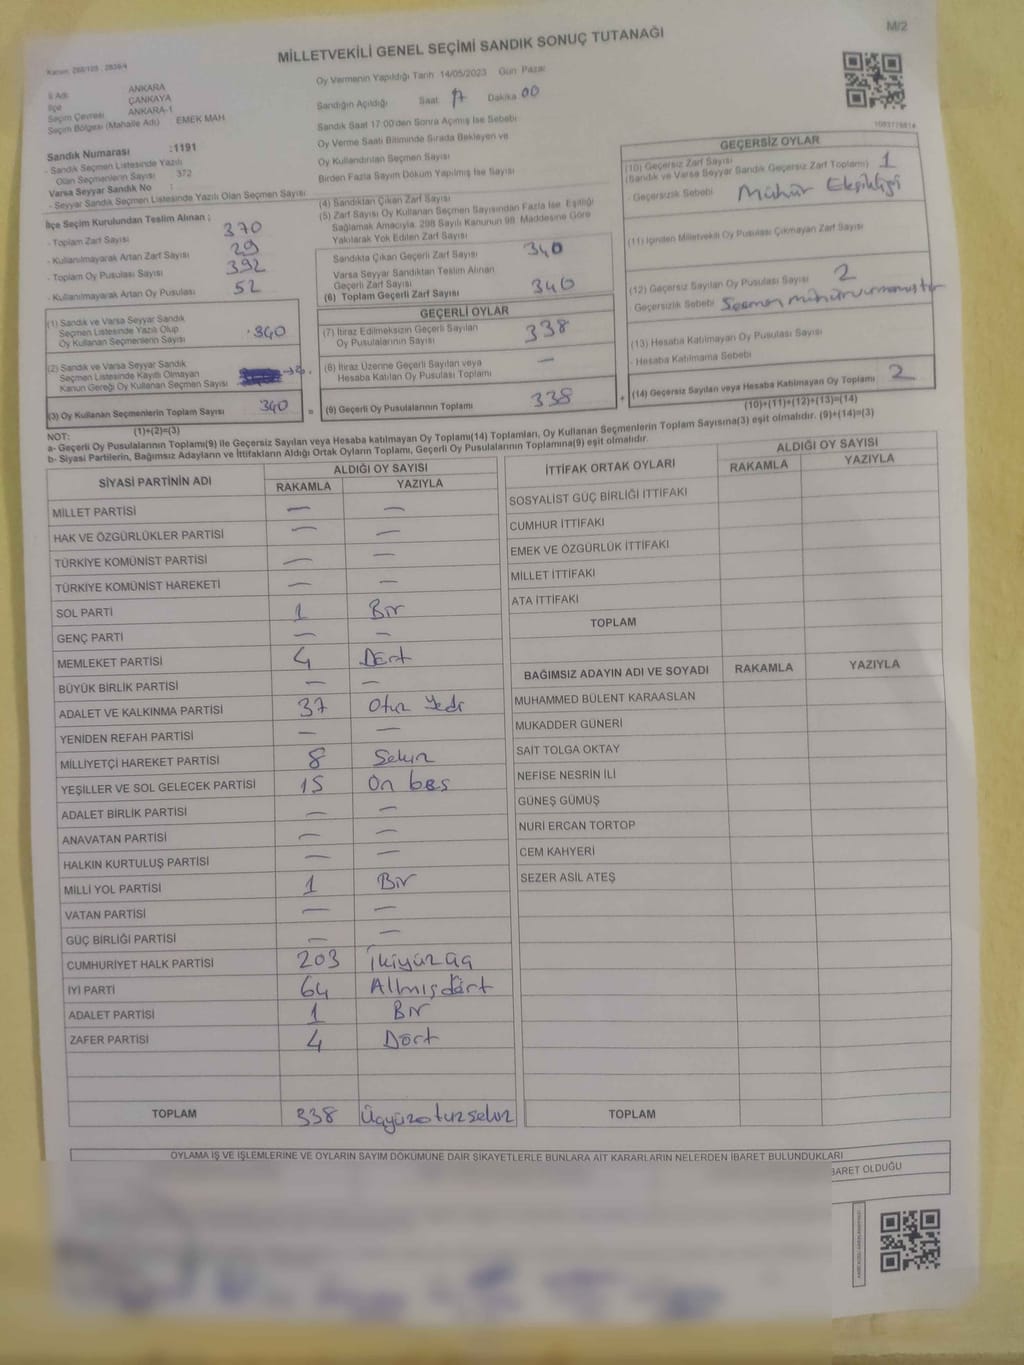 M/2
MİLLETVEKİLİ GENEL SEÇİMİ SANDIK SONUÇ TUTANAĞI
İl Adı ANKARA
İlçe ÇANKAYA
Seçim Çevresi ANKARA-1
Seçim Bölgesi (Mahalle Adı) EMEK MAH
Sandık Numarası :1191
- Sandık Seçmen Listesinde Yazılı
Olan Seçmenlerin Sayısı : 372
Varsa Seyyar Sandık No :
- Seyyar Sandık Seçmen Listesinde Yazılı Olan Seçmen Sayısı
Oy Vermenin Yapıldığı Tarih 14/05/2023 Gün Pazar
Sandığın Açıldığı Saat 17 Dakika 00
Sandık Saat 17:00'den Sonra Açmış İse Sebebi
Oy Verme Saati Bitiminde Sırada Bekleyen ve
Oy Kullandırılan Seçmen Sayısı
Birden Fazla Sayım Döküm Yapılmış İse Sayısı
İlçe Seçim Kurulundan Teslim Alınan ;
- Toplam Zarf Sayısı 370
- Kullanılmayarak Artan Zarf Sayısı 29
- Toplam Oy Pusulası Sayısı 392
- Kullanılmayarak Artan Oy Pusulası 52
(1) Sandık ve Varsa Seyyar Sandık
Seçmen Listesinde Yazılı Olup
Oy Kullanan Seçmenlerin Sayısı 340
(2) Sandık ve Varsa Seyyar Sandık
Seçmen Listesinde Kayıtlı Olmayan
Kanun Gereği Oy Kullanan Seçmen Sayısı
(3) Oy Kullanan Seçmenlerin Toplam Sayısı 340 =
(1)+(2)=(3)
(4) Sandıktan Çıkan Zarf Sayısı
(5) Zarf Sayısı Oy Kullanan Seçmen Sayısından Fazla İse Eşitliği
Sağlamak Amacıyla 298 Sayılı Kanunun 98. Maddesine Göre
Yakılarak Yok Edilen Zarf Sayısı
Sandıkta Çıkan Geçerli Zarf Sayısı 340
Varsa Seyyar Sandıktan Teslim Alınan
Geçerli Zarf Sayısı
(6) Toplam Geçerli Zarf Sayısı 340
GEÇERLİ OYLAR
(7) İtiraz Edilmeksizin Geçerli Sayılan
Oy Pusulalarının Sayısı 338
(8) İtiraz Üzerine Geçerli Sayılan veya
Hesaba Katılan Oy Pusulası Toplamı —
(9) Geçerli Oy Pusulalarının Toplamı 338 +
GEÇERSİZ OYLAR
(10) Geçersiz Zarf Sayısı
(Sandık ve Varsa Seyyar Sandık Geçersiz Zarf Toplamı) 1
- Geçersizlik Sebebi Mühür Eksikliği
(11) İçinden Milletvekili Oy Pusulası Çıkmayan Zarf Sayısı
(12) Geçersiz Sayılan Oy Pusulası Sayısı 2
Geçersizlik Sebebi Seçmen mühür vurmamıştır
(13) Hesaba Katılmayan Oy Pusulası Sayısı
- Hesaba Katılmama Sebebi
(14) Geçersiz Sayılan veya Hesaba Katılmayan Oy Toplamı 2
(10)+(11)+(12)+(13)=(14)
NOT:
a- Geçerli Oy Pusulalarının Toplamı(9) ile Geçersiz Sayılan veya Hesaba katılmayan Oy Toplamı(14) Toplamları, Oy Kullanan Seçmenlerin Toplam Sayısına(3) eşit olmalıdır. (9)+(14)=(3)
b- Siyasi Partilerin, Bağımsız Adayların ve İttifakların Aldığı Ortak Oyların Toplamı, Geçerli Oy Pusulalarının Toplamına(9) eşit olmalıdır.
SİYASİ PARTİNİN ADI ALDIĞI OY SAYISI
RAKAMLA YAZIYLA
MİLLET PARTİSİ — —
HAK VE ÖZGÜRLÜKLER PARTİSİ — —
TÜRKİYE KOMÜNİST PARTİSİ — —
TÜRKİYE KOMÜNİST HAREKETİ — —
SOL PARTİ 1 Bir
GENÇ PARTİ — —
MEMLEKET PARTİSİ 4 Dört
BÜYÜK BİRLİK PARTİSİ — —
ADALET VE KALKINMA PARTİSİ 37 Otuz Yedi
YENİDEN REFAH PARTİSİ — —
MİLLİYETÇİ HAREKET PARTİSİ 8 Sekiz
YEŞİLLER VE SOL GELECEK PARTİSİ 15 On beş
ADALET BİRLİK PARTİSİ — —
ANAVATAN PARTİSİ — —
HALKIN KURTULUŞ PARTİSİ — —
MİLLİ YOL PARTİSİ 1 Bir
VATAN PARTİSİ — —
GÜÇ BİRLİĞİ PARTİSİ — —
CUMHURİYET HALK PARTİSİ 203 İkiyüz üç
İYİ PARTİ 64 Altmış dört
ADALET PARTİSİ 1 Bir
ZAFER PARTİSİ 4 Dört
TOPLAM 338 Üçyüzotuzsekiz
İTTİFAK ORTAK OYLARI ALDIĞI OY SAYISI
RAKAMLA YAZIYLA
SOSYALİST GÜÇ BİRLİĞİ İTTİFAKI
CUMHUR İTTİFAKI
EMEK VE ÖZGÜRLÜK İTTİFAKI
MİLLET İTTİFAKI
ATA İTTİFAKI
TOPLAM
BAĞIMSIZ ADAYIN ADI VE SOYADI RAKAMLA YAZIYLA
MUHAMMED BÜLENT KARAASLAN
MUKADDER GÜNERİ
SAİT TOLGA OKTAY
NEFİSE NESRİN İLİ
GÜNEŞ GÜMÜŞ
NURİ ERCAN TORTOP
CEM KAHYERİ
SEZER ASİL ATEŞ
TOPLAM
OYLAMA İŞ VE İŞLEMLERİNE VE OYLARIN SAYIM DÖKÜMÜNE DAİR ŞİKAYETLERLE BUNLARA AİT KARARLARIN NELERDEN İBARET BULUNDUKLARI
BARET OLDUĞU